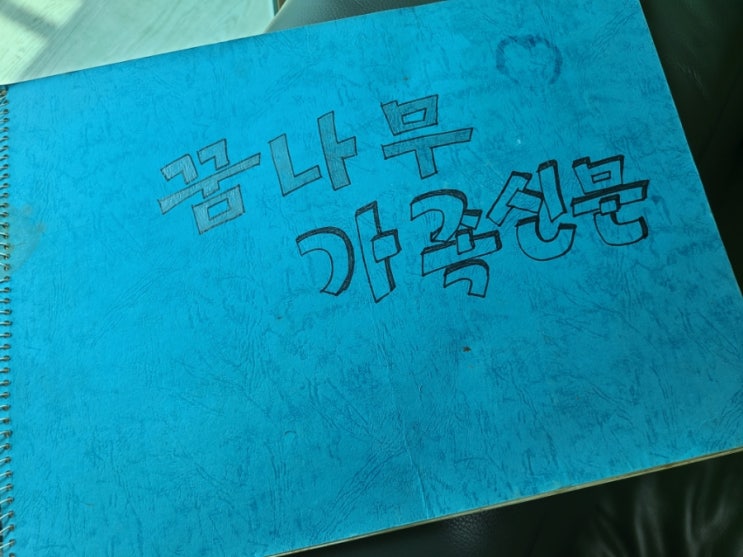 꿈나무
가족신문